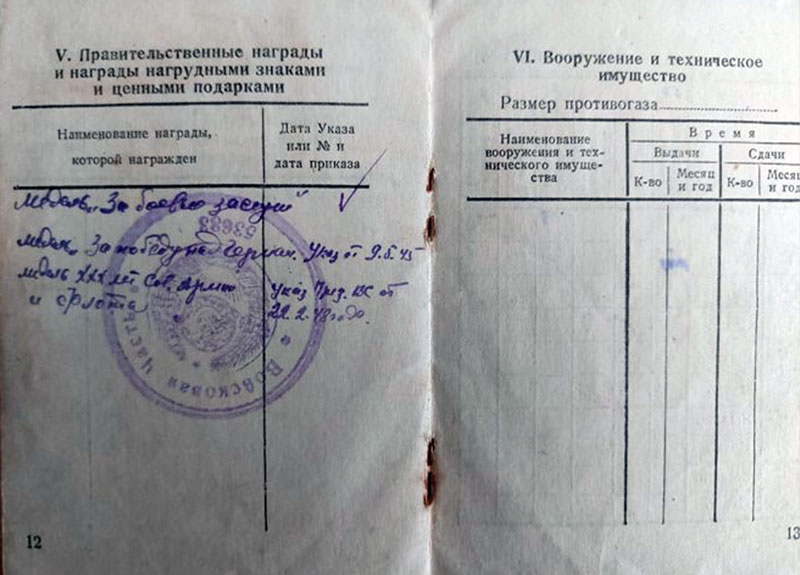 V. Правительственные награды
и награды нагрудными знаками
и ценными подарками
Наименование награды,
которой награжден
Дата Указа
или № и
дата приказа
медаль „За боевые заслуги"
медаль „За победу над Герман. Указ от 9.5.45
медаль XXX лет Сов. Армии
и Флота
Указ През. ВС от
22.2.48 года.
Войсковая Часть
53683
12
VI. Вооружение и техническое
имущество
Размер противогаза
Наименование
вооружения и тех-
нического имуще-
ства
Время
Выдачи
Сдачи
К-во
Месяц
и год
К-во
Месяц
и год
13